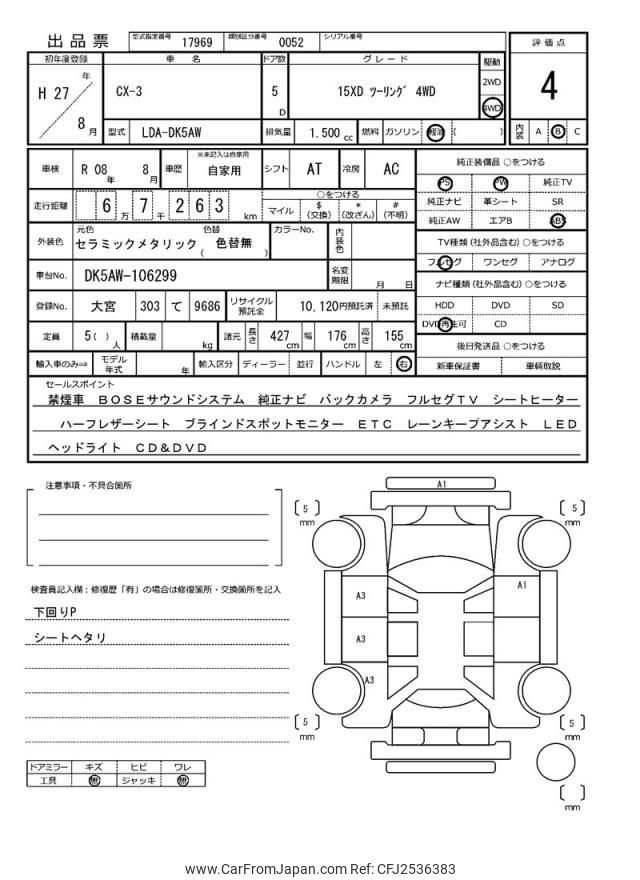 出品票 型式指定番号 17969 類別区分番号 0052 シリアル番号
評価点
4
内装 A B C
初年度登録 車名 ドア数 グレード 駆動
H 27 年 8 月 CX-3 5 D 15XD ツーリング 4WD 2WD 4WD
型式 LDA-DK5AW 排気量 1,500 cc 燃料 ガソリン 軽油 ( )
車検 R 08 年 8 月 車歴 ※未記入は自家用 自家用 シフト AT 冷房 AC
走行距離 6 万 7 千 2 6 3 km ○をつける マイル $ (交換) * (改ざん) # (不明)
外装色 元色 セラミックメタリック 色替 ( 色替無 ) カラーNo. 内装色
車台No. DK5AW-106299 名変期限 月 日
登録No. 大宮 303 て 9686 リサイクル預託金 10,120円預託済 未預託
定員 5 ( ) 人 積載量 kg 諸元 長さ 427 cm 幅 176 cm 高さ 155 cm
輸入車のみ⇒ モデル年式 年 輸入区分 ディーラー 並行 ハンドル 左 右
純正装備品 ○をつける
PS PW 純正TV
純正ナビ 革シート SR
純正AW エアB ABS
TV種類 (社外品含む) ○をつける
フルセグ ワンセグ アナログ
ナビ種類 (社外品含む) ○をつける
HDD DVD SD
DVD再生可 CD
後日発送品 ○をつける
新車保証書 車輌取説
セールスポイント
禁煙車 BOSEサウンドシステム 純正ナビ バックカメラ フルセグTV シートヒーター
ハーフレザーシート ブラインドスポットモニター ETC レーンキープアシスト LED
ヘッドライト CD&DVD
注意事項・不具合箇所
検査員記入欄：修復歴「有」の場合は修復箇所・交換箇所を記入
下回りP
シートヘタリ
ドアミラー キズ ヒビ ワレ
工具 無 ジャッキ 無
A1
5 mm
5 mm
A3
A1
A3
A3
5 mm
5 mm
mm
www.CarFromJapan.com Ref: CFJ2536383